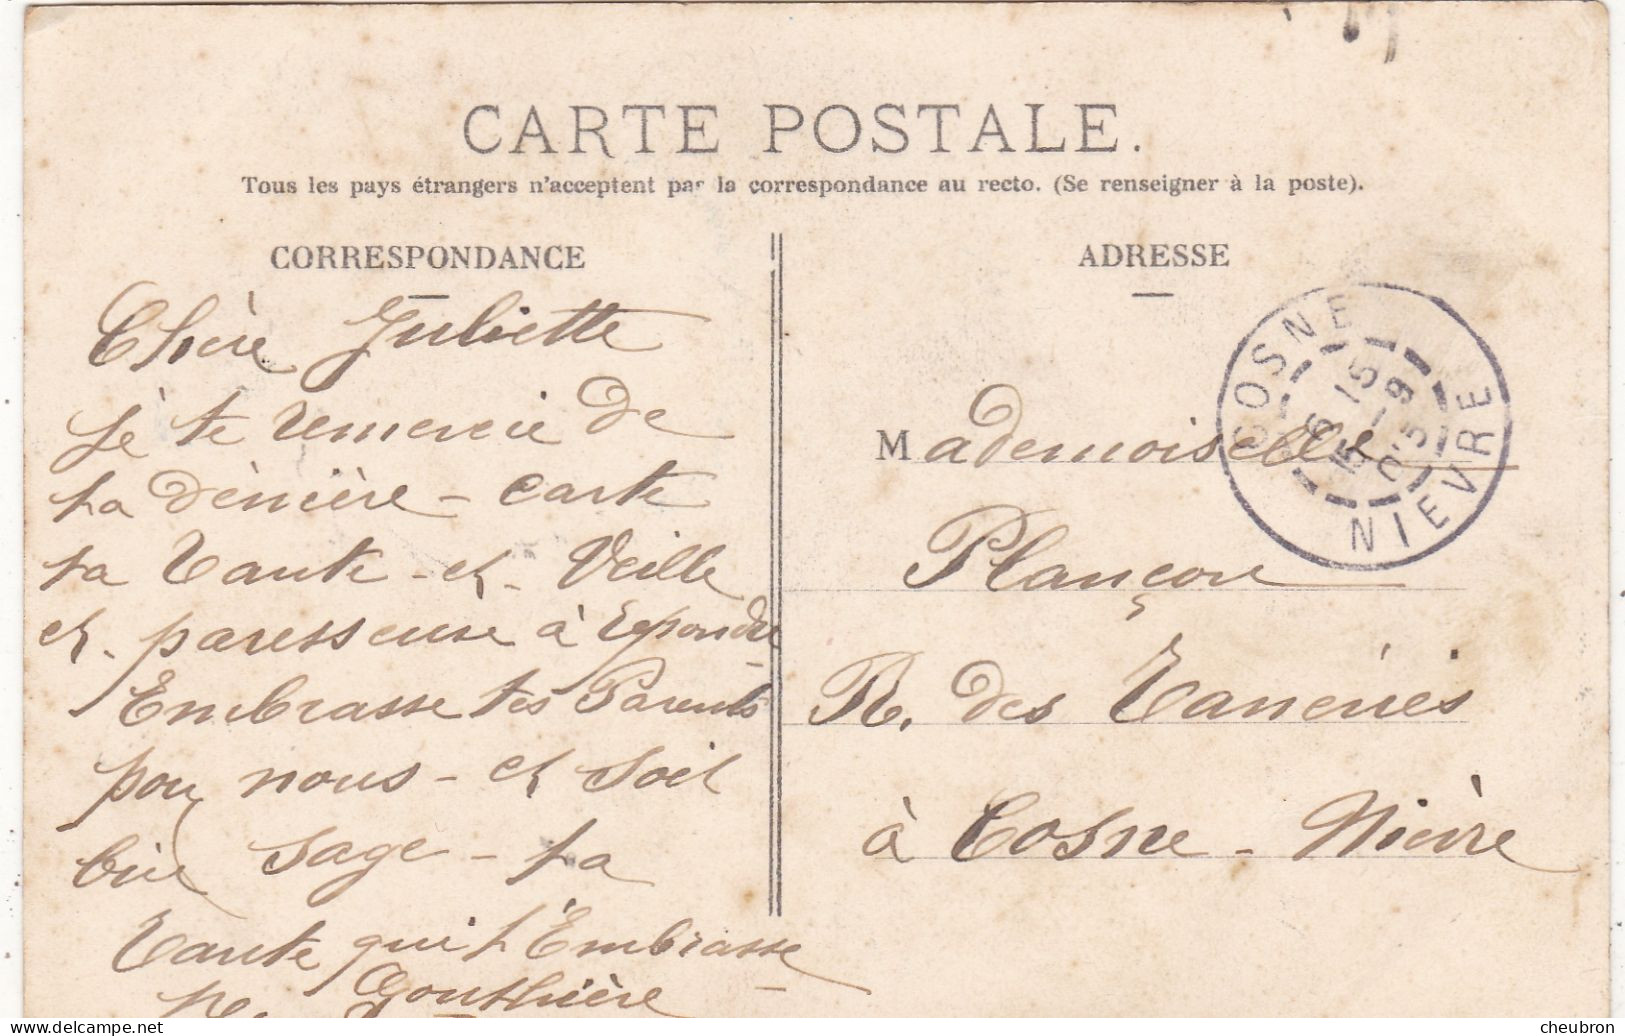 CARTE POSTALE.
Tous les pays étrangers n'acceptent pas la correspondance au recto. (Se renseigner à la poste).
CORRESPONDANCE
Chère Juliette
Je te remercie de
ta dernière - carte
ta Tante - et - Veille
et - paresseuse à repondre
Embrasse tes Parents
pour nous - et soit
bien sage - ta
Tante qui t'Embrasse
Gouthière
ADRESSE
Mademoiselle
Plançon
R. des Taneries
à Cosne - Nièvre
COSNE
15
NIEVRE
cheubron - delcampe.net